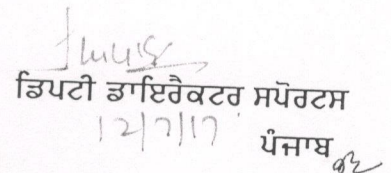 ਡਿਪਟੀ ਡਾਇਰੈਕਟਰ ਸਪੋਰਟਸ
12/7/17
ਪੰਜਾਬ